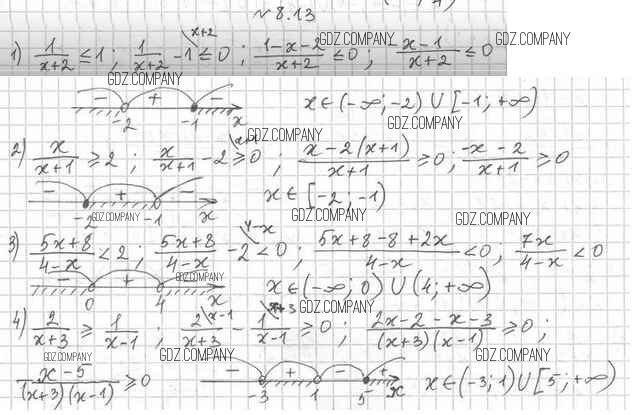 № 8.13
1) 1/(x+2) ≤ 1 ; 1/(x+2) - 1\x+2 ≤ 0 ; (1-x-2)/(x+2) ≤ 0 ; (x-1)/(x+2) ≤ 0
GDZ.COMPANY GDZ.COMPANY
GDZ.COMPANY
- + - -2 -1 x x ∈ (-∞; -2) ∪ [-1; +∞)
GDZ.COMPANY GDZ.COMPANY
2) x/(x+1) ≥ 2 ; x/(x+1) - 2\x+1 ≥ 0 ; (x-2(x+1))/(x+1) ≥ 0 ; (-x-2)/(x+1) ≥ 0
- + - -2 -1 x x ∈ [-2; -1)
GDZ.COMPANY GDZ.COMPANY GDZ.COMPANY
3) (5x+8)/(4-x) < 2 ; (5x+8)/(4-x) - 2\4-x < 0 ; (5x+8-8+2x)/(4-x) < 0 ; 7x/(4-x) < 0
GDZ.COMPANY
- + - 0 4 x x ∈ (-∞; 0) ∪ (4; +∞)
GDZ.COMPANY
4) 2/(x+3) ≥ 1/(x-1) ; 2\x-1/(x+3) - 1\x+3/(x-1) ≥ 0 ; (2x-2-x-3)/((x+3)(x-1)) ≥ 0 ;
GDZ.COMPANY GDZ.COMPANY GDZ.COMPANY GDZ.COMPANY
(x-5)/((x+3)(x-1)) ≥ 0 - + - + -3 1 5 x x ∈ (-3; 1) ∪ [5; +∞)